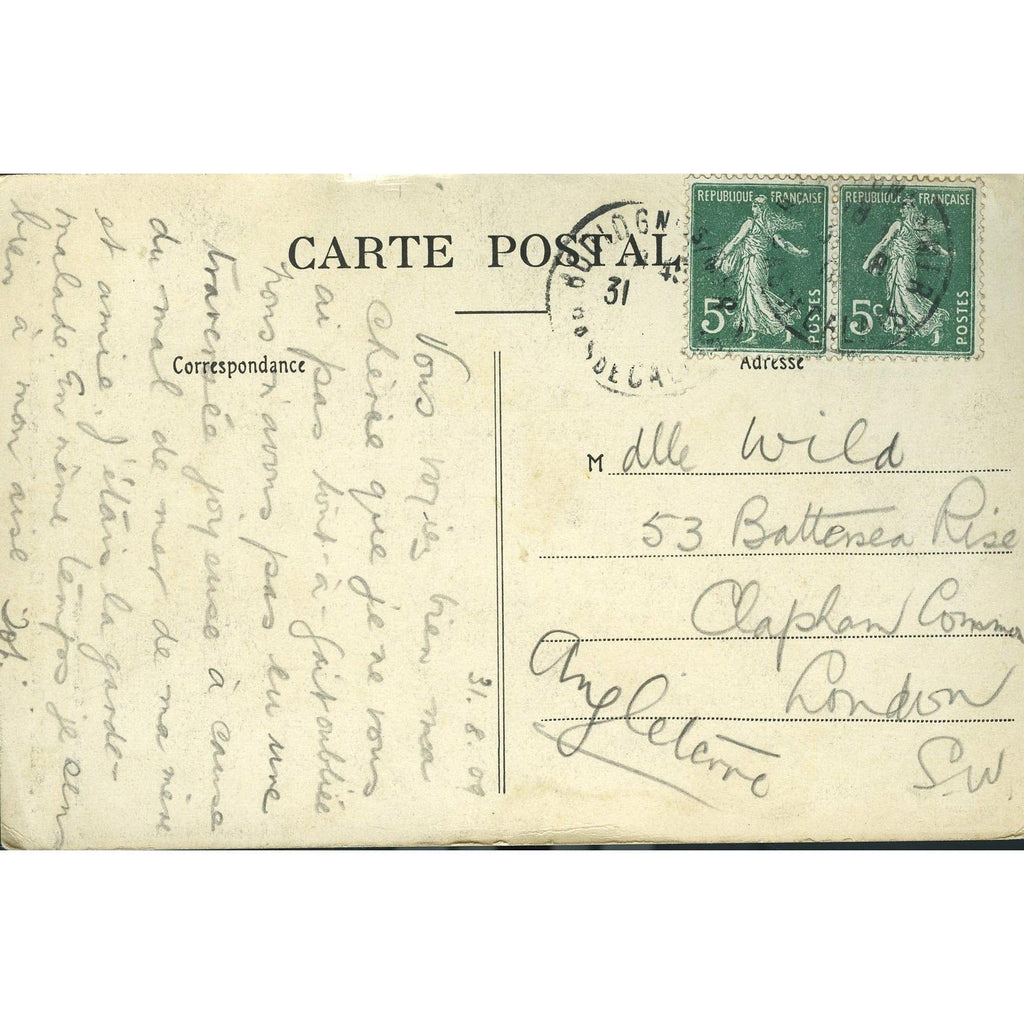 CARTE POSTALE
BOULOGNE-SUR-MER
31
PAS DE CALAIS
REPUBLIQUE FRANÇAISE
5c
POSTES
REPUBLIQUE FRANÇAISE
5c
POSTES
Correspondance
Adresse
31.8.09
Vous voyez bien ma
chérie que je ne vous
ai pas tout-à-fait oubliée
nous n'avons pas eu une
traversée joyeuse à cause
du mal de mer de ma mère
et amie j'étais la garde-
malade. En même temps je sens
bien à mon aise
M dlle Wild
53 Battersea Rise
Clapham Common
London
S.W.
Angleterre